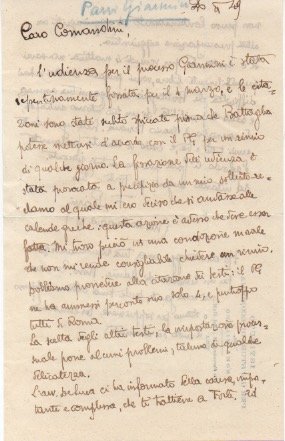 Parri Giannini
Caro Comandini,
L'udienza per il processo Giannini è stata
repentinamente fissata per il 4 marzo, e le cita=
zioni sono state subito spiccate prima che Battaglia
potesse mettersi d'accordo con il PG per un rinvio
di qualche giorno. La fissazione dell'udienza è
stata provocata a precipizio da un mio sollecito re=
clamo al quale mi ero deciso che si andasse alle
calende greche: questa azione è adesso che deve esser
fatta. Mi trovo perciò in una condizione morale
che non mi rende consigliabile chiedere un rinvio.
Dobbiamo provvedere alla citazione dei testi: il PG
ne ha ammessi per conto mio solo 4, e purtroppo
tutti di Roma.
La scelta degli altri testi, la impostazione proces=
suale pone alcuni problemi, taluno di qualche
delicatezza.
ci ha informato della causa, impor
tante e complessa, che ti trattiene a Forlì, ed